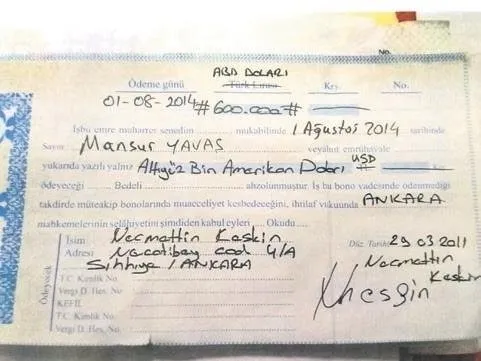 No.
ABD DOLARI
Ödeme günü Türk Lirası Krş. No.
01-08-2014 #600.000#
İşbu emre muharrer senedin mukabilinde 1 Ağustos 2014 tarihinde
Sayın Mansur YAVAŞ veyahut emrühavale
yukarıda yazılı yalnız Altıyüz Bin Amerikan Doları USD
ödeyeceği Bedeli ahzolunmuştur. İş bu bono vadesinde ödenmediği
takdirde müteakip bonolarında muacceliyet kesbedeceğini, ihtilaf vukuunda ANKARA
mahkemelerinin selâhiyetini şimdiden kabul eyleri Okudu
Ödeyecek
İsim Necmettin Keskin
Adresi Necatibey cad 4/A
Sıhhiye / ANKARA
T.C. Kimlik No.
Vergi D. Hes. No
KEFİL
T.C. Kimlik No
Vergi D. Hes. No.
Düz. Tarihi 29 03 2011
Necmettin
Keskin